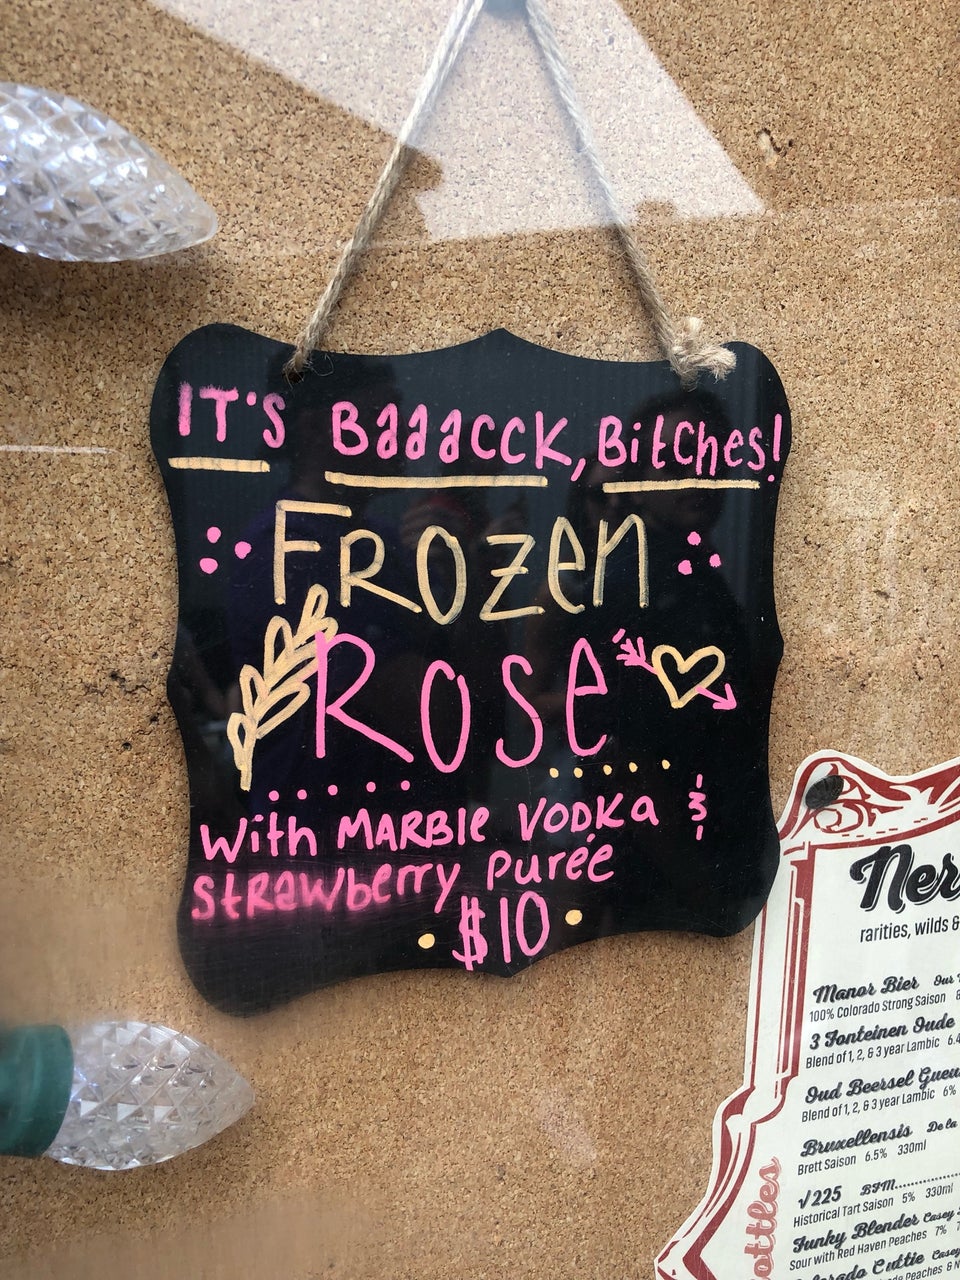 IT'S Baaacck, Bitches!
Frozen
Rose
With MARBLE VODKA &
Strawberry Puree
$10
Ner
rarities, wilds &
Manor Bier Our
100% Colorado Strong Saison
3 Fonteinen Oude
Blend of 1, 2, & 3 year Lambic 6.4
Oud Beersel Gueu
Blend of 1, 2, & 3 year Lambic 6%
Bruxellensis De la
Brett Saison 6.5% 330ml
√225 BFM
Historical Tart Saison 5% 330ml
Funky Blender Casey
Sour with Red Haven Peaches 7%
olorado Cuttie Casey
Peaches & N
ottles